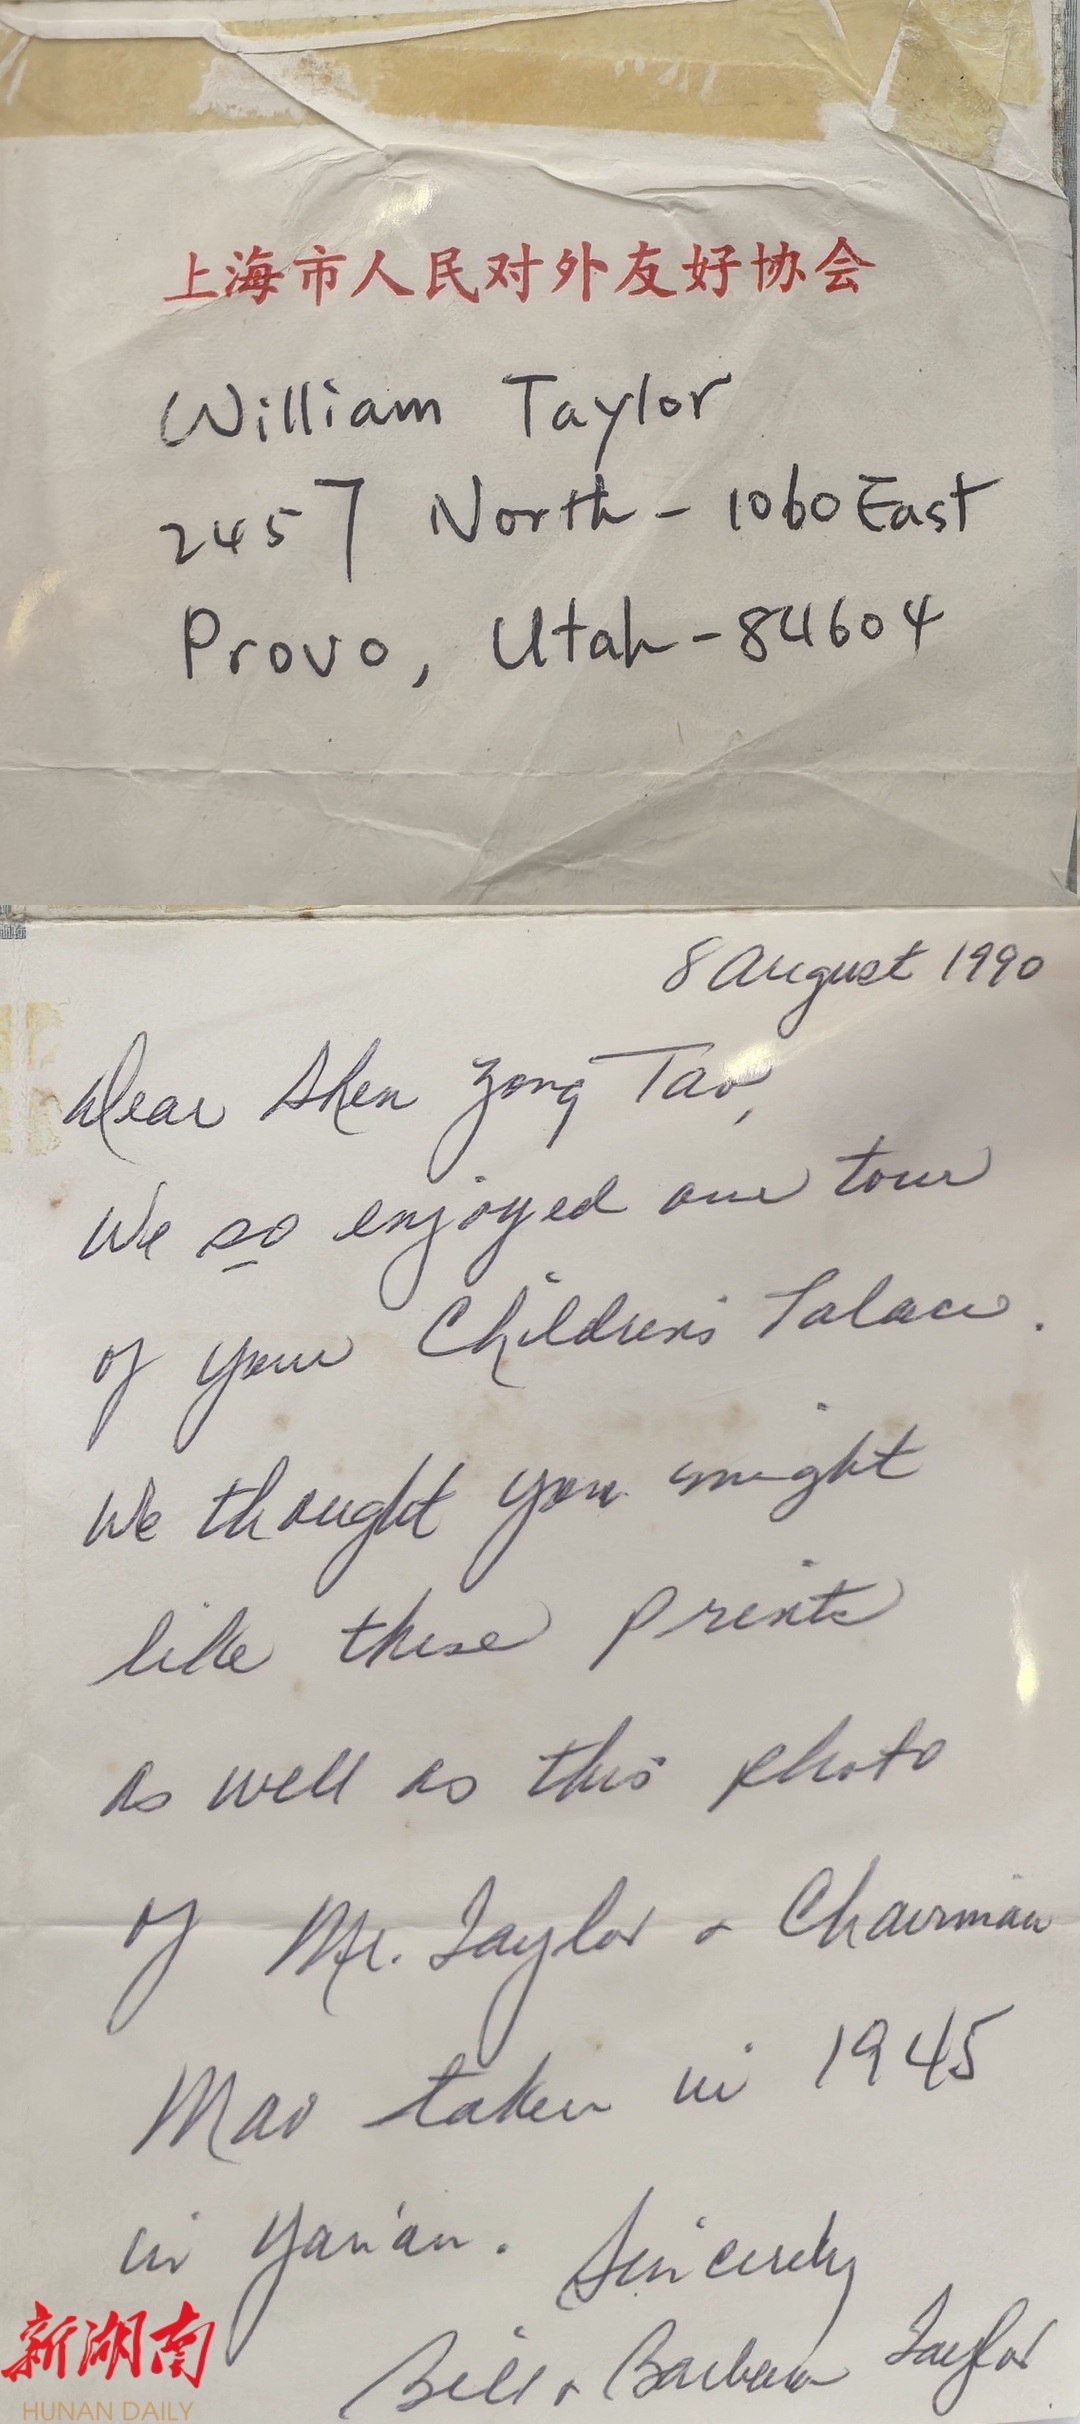 上海市人民对外友好协会
William Taylor
2457 North - 1060 East
Provo, Utah - 84604
8 August 1990
Dear Shen Zong Tao,
We so enjoyed our tour
of your Children's Palace.
We thought you might
like these prints
as well as this photo
of Mr. Taylor & Chairman
Mao taken in 1945
in Yan'an. Sincerely
Bill & Barbara Taylor
新湖南
HUNAN DAILY